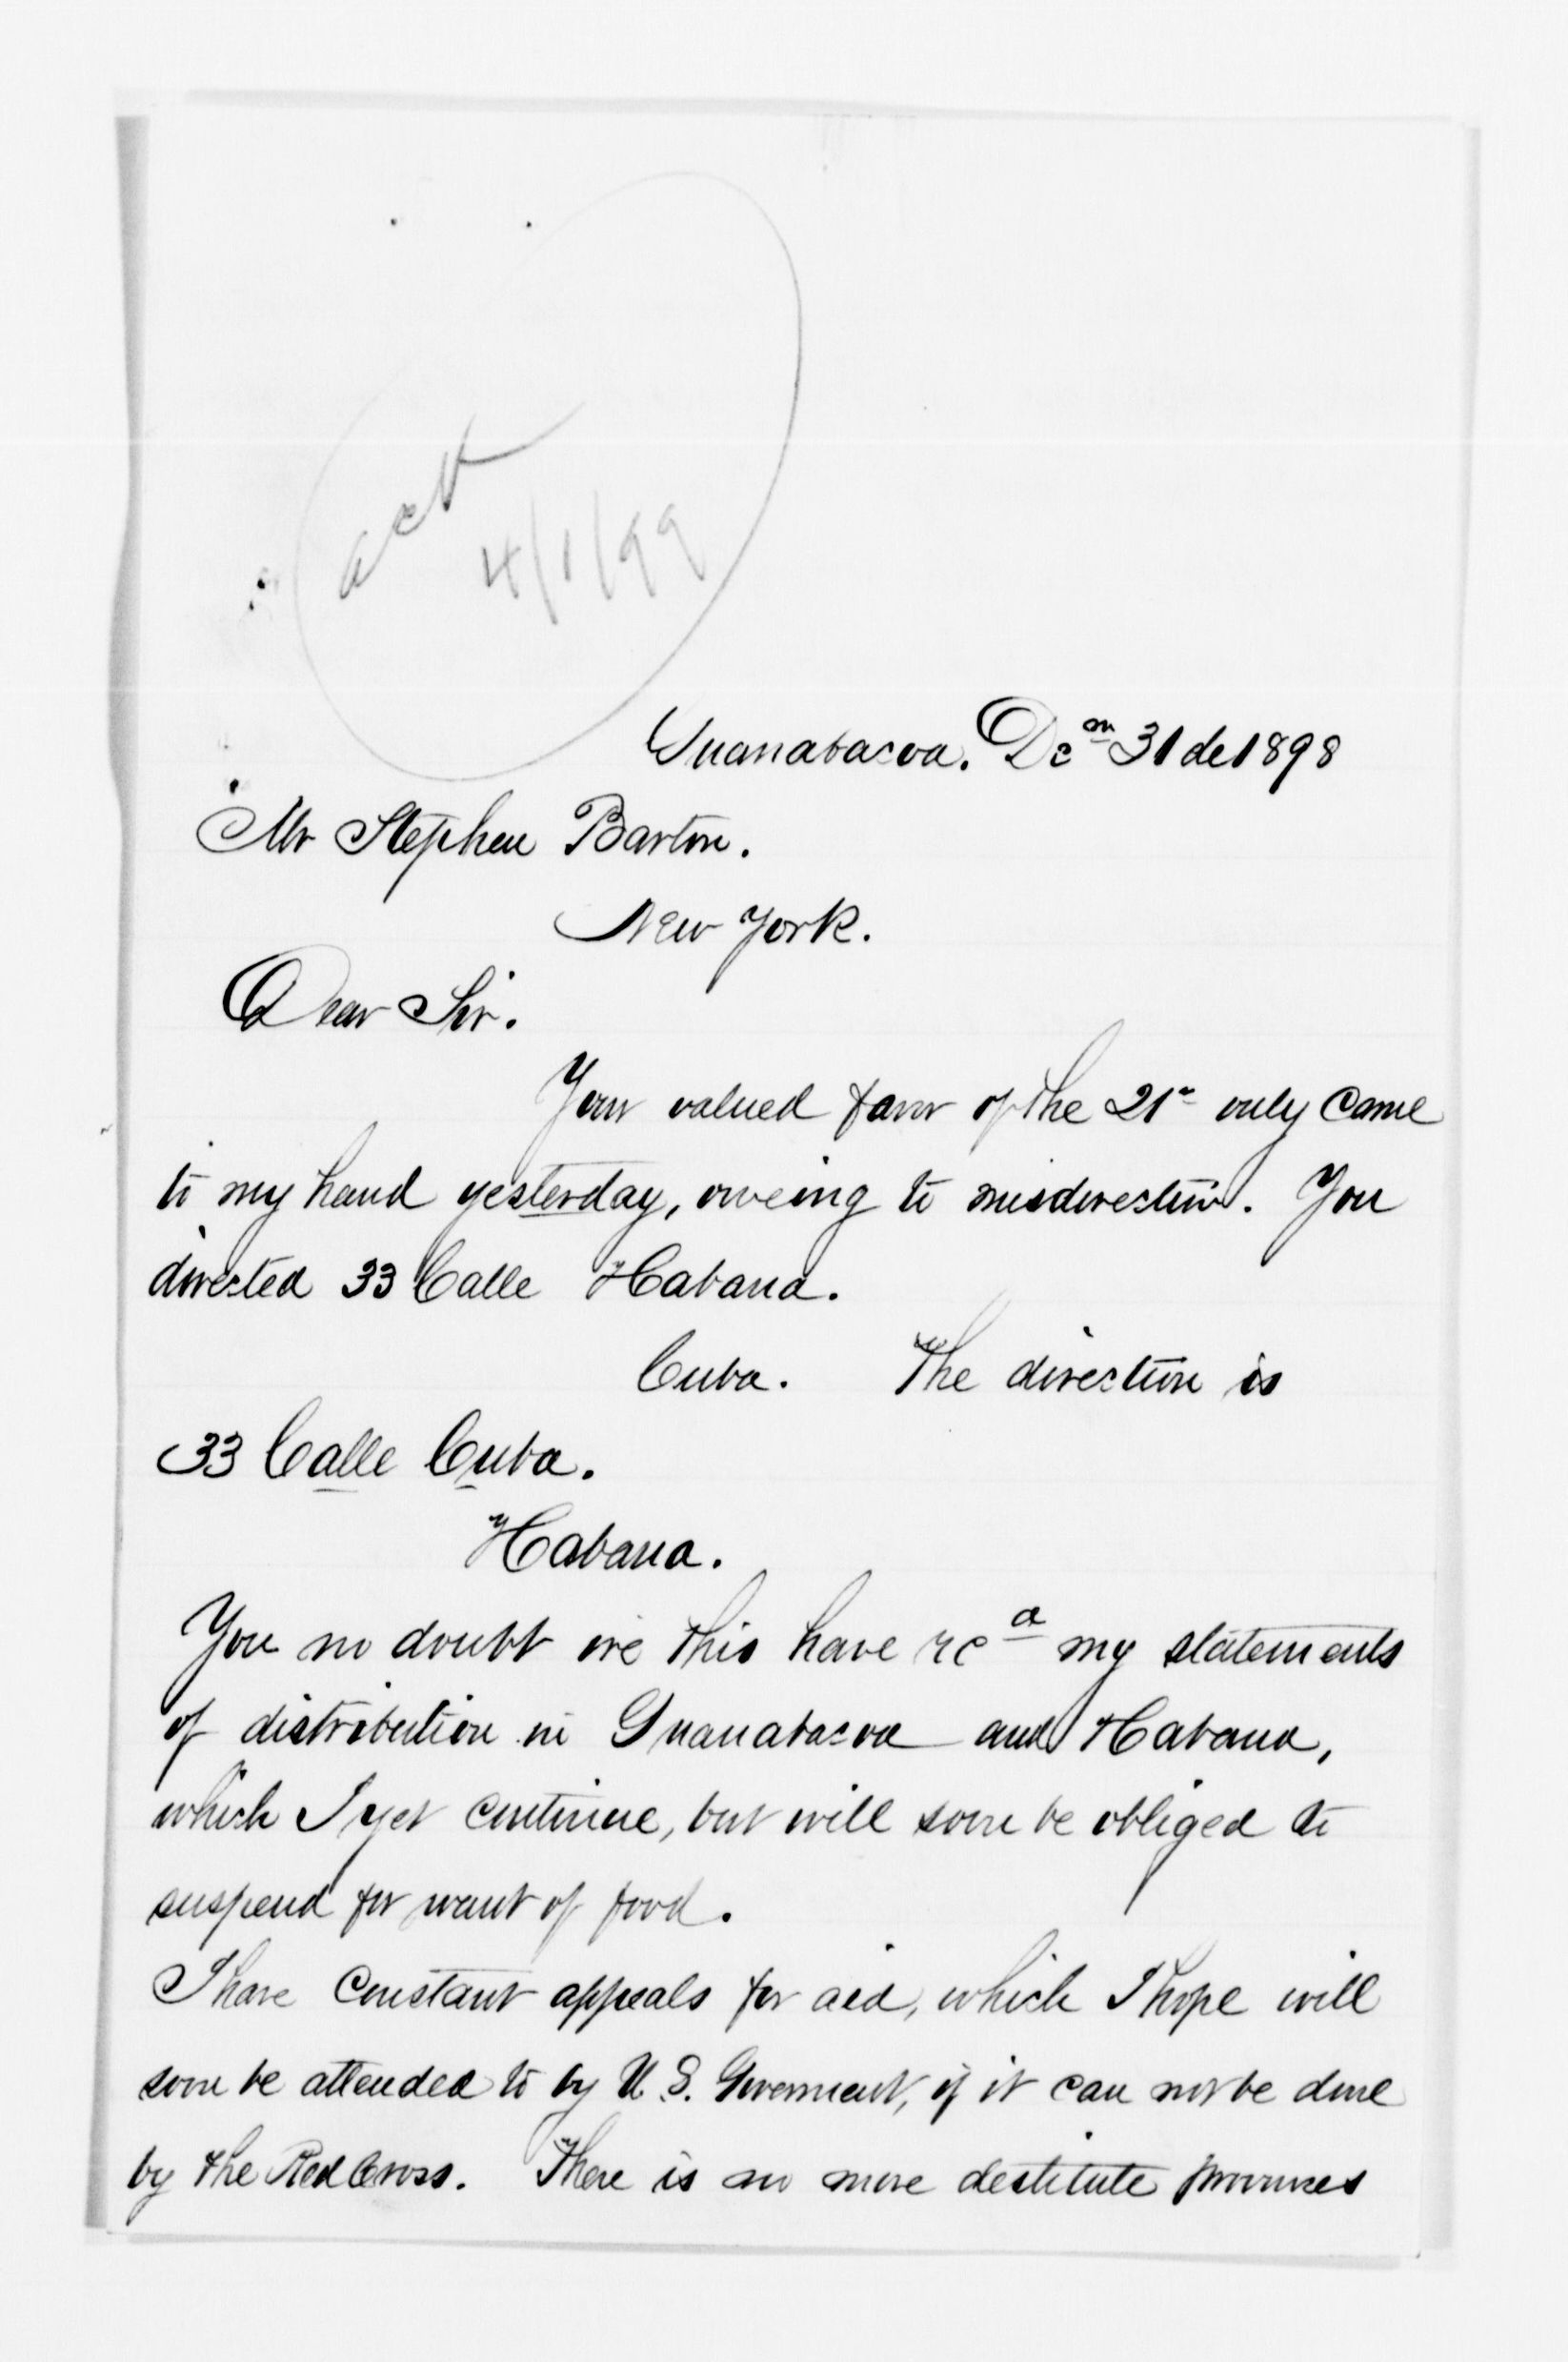 ack
4/1/99
Guanabacoa. Dcm 31 de 1898
Mr Stephen Barton.
New York.
Dear Sir.
Your valued favor of the 21" only came
to my hand yesterday, oweing to misdirection. You
directed 33 Calle Habana.
Cuba. The direction is
33 Calle Cuba.
Habana.
You no doubt ere this have rcd my statements
of distribution in Guanabacoa and Habana,
which I yet continue, but will soon be obliged to
suspend for want of food.
I have constant appeals for aid, which I hope will
soon be attended to by U. S. Goverment, if it can not be done
by the Red Cross. There is no more destitute provinces